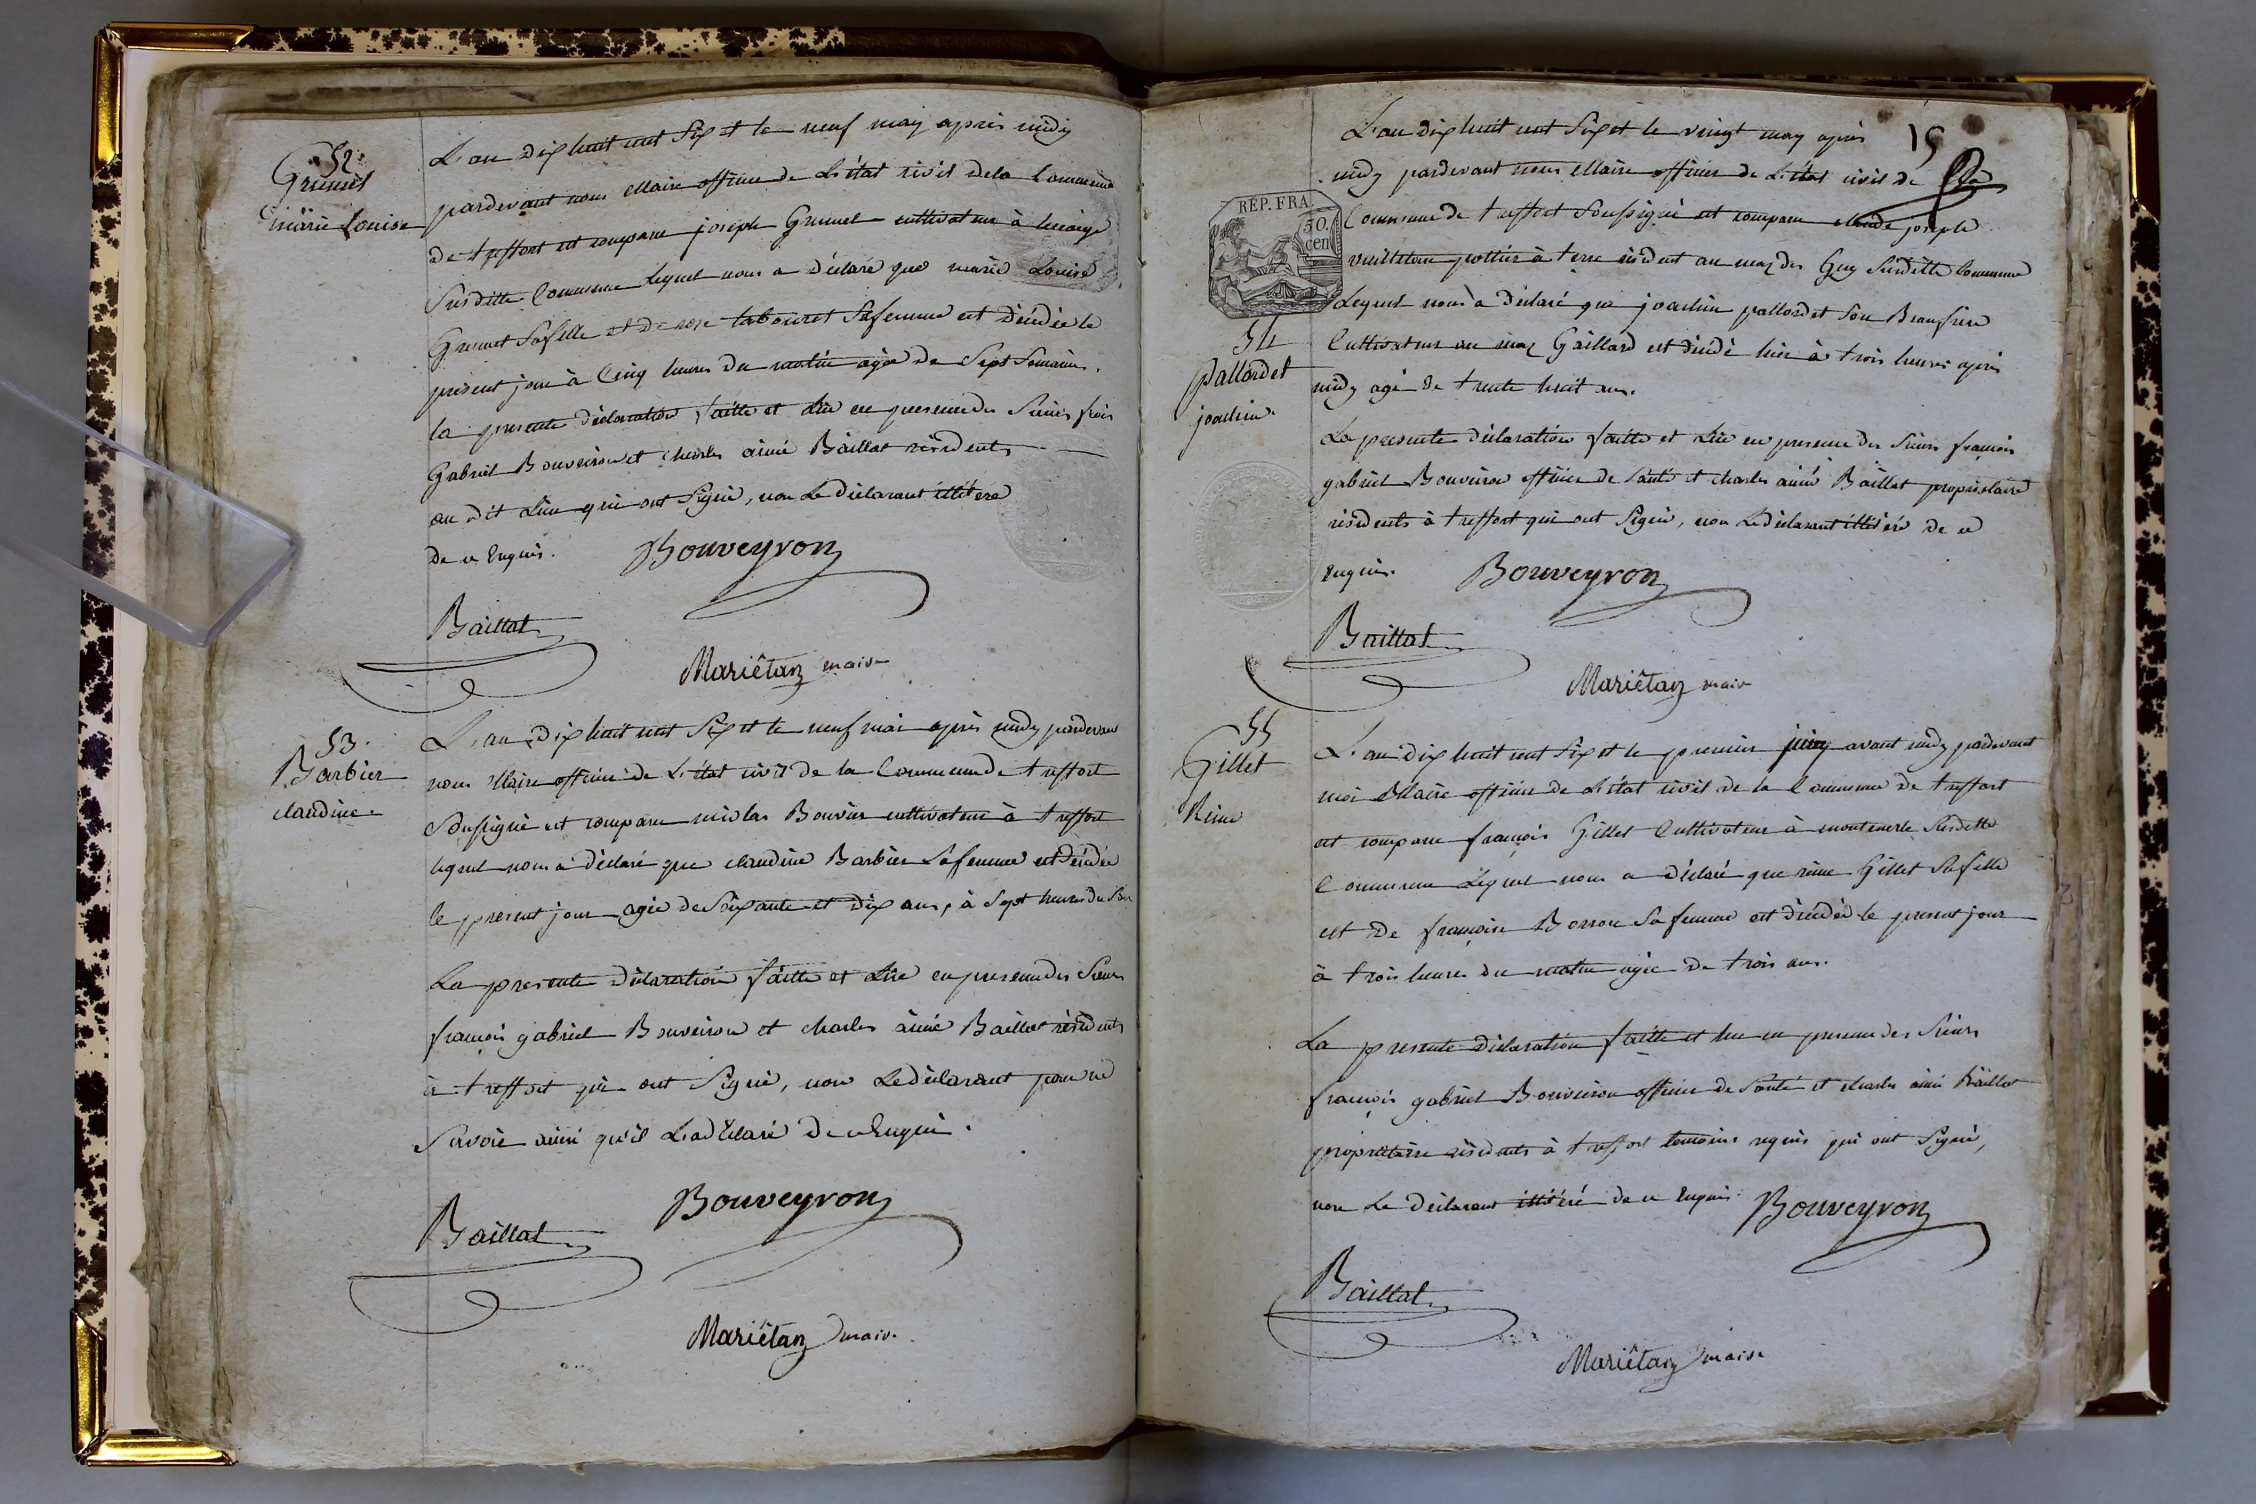 52.
Grumet
marie Louise
L'an dix huit cent six et le neuf may après midy
pardevant nous Maire officier de L'état civil dela Commune
de treffort est comparu joseph Grumet cultivateur à
Susditte Commune Lequel nous a déclaré que marie Louise
Grumet Safille et de rose tabouret Safemme est décédée le
présent jour à Cinq heures du matin agée de Sept Semaines.
la presente déclaration faitte et Lüe en presence des Sieurs frois
Gabriel Bouveiron et charles aimé Baillat résidents
au dit Lieu qui ont Signé, non Le déclarant illitéré
de ce Enquis.
Bouveyron
Baillat
Mariêtan maire
53.
Barbier
claudine
L'an dix huit cent Six et le neuf mai après midy pardevant
nous Maire officier de L'état civil de la Commune de treffort
Soussigné est comparu nicolas Bouvier cultivateur à treffort
lequel nous a déclaré que claudine Barbier Safemme est décédée
le present jour agée de Soixante et dix ans, à Sept heures du Soir
La presente déclaration faitte et Lüe en presence des Sieurs
françois gabriel Bouveiron et charles aimé Baillat résidents
à treffort qui ont Signé, non Le déclarant pour ne
Savoir ainsi qu'il L'a déclaré de ce Enquis.
Bouveyron
Baillat
Mariêtan maire
15
REP. FRA.
50.
cen
54
Pallordet
joachin.
L'an dix huit cent Six et le vingt may après
midy pardevant nous Maire officier de L'état civil de La
Commune de treffort Soussigné est comparu claude joseph
vuilleton pottier à terre résident au maz des Guy Susditte Commune
Lequel nous a déclaré que joachin pallordet Son Beaufrère
Cultivateur au maz Gaillard est décédé hier à trois heures après
midy agé de trente huit ans.
La presente déclaration faitte et Lüe en presence des Sieurs françois
gabriel Bouveiron officier de Santé et charles aimé Baillat propriétaire
résidents à treffort qui ont Signé, non Le déclarant illitéré de ce
Enquis.
Bouveyron
Baillat
Mariêtan maire
55
Gillet
Reine
L'an dix huit cent Six et le premier juin avant midy pardevant
moi Maire officier de L'état civil de la Commune de treffort
est comparu françois Gillet Cultivateur à montmerle Susditte
Commune Lequel nous a déclaré que reine Gillet Safille
et De françoise Berron Sa femme est décédée le present jour
à trois heures du matin agée de trois ans.
La presente déclaration faitte et lue en presence des Sieurs
françois gabriel Bouveiron officier de Santé et charles aimé Baillat
propriétaire résidents à treffort temoins requis qui ont Signé,
non Le déclarant illitéré de ce Enquis.
Bouveyron
Baillat
Mariêtan maire